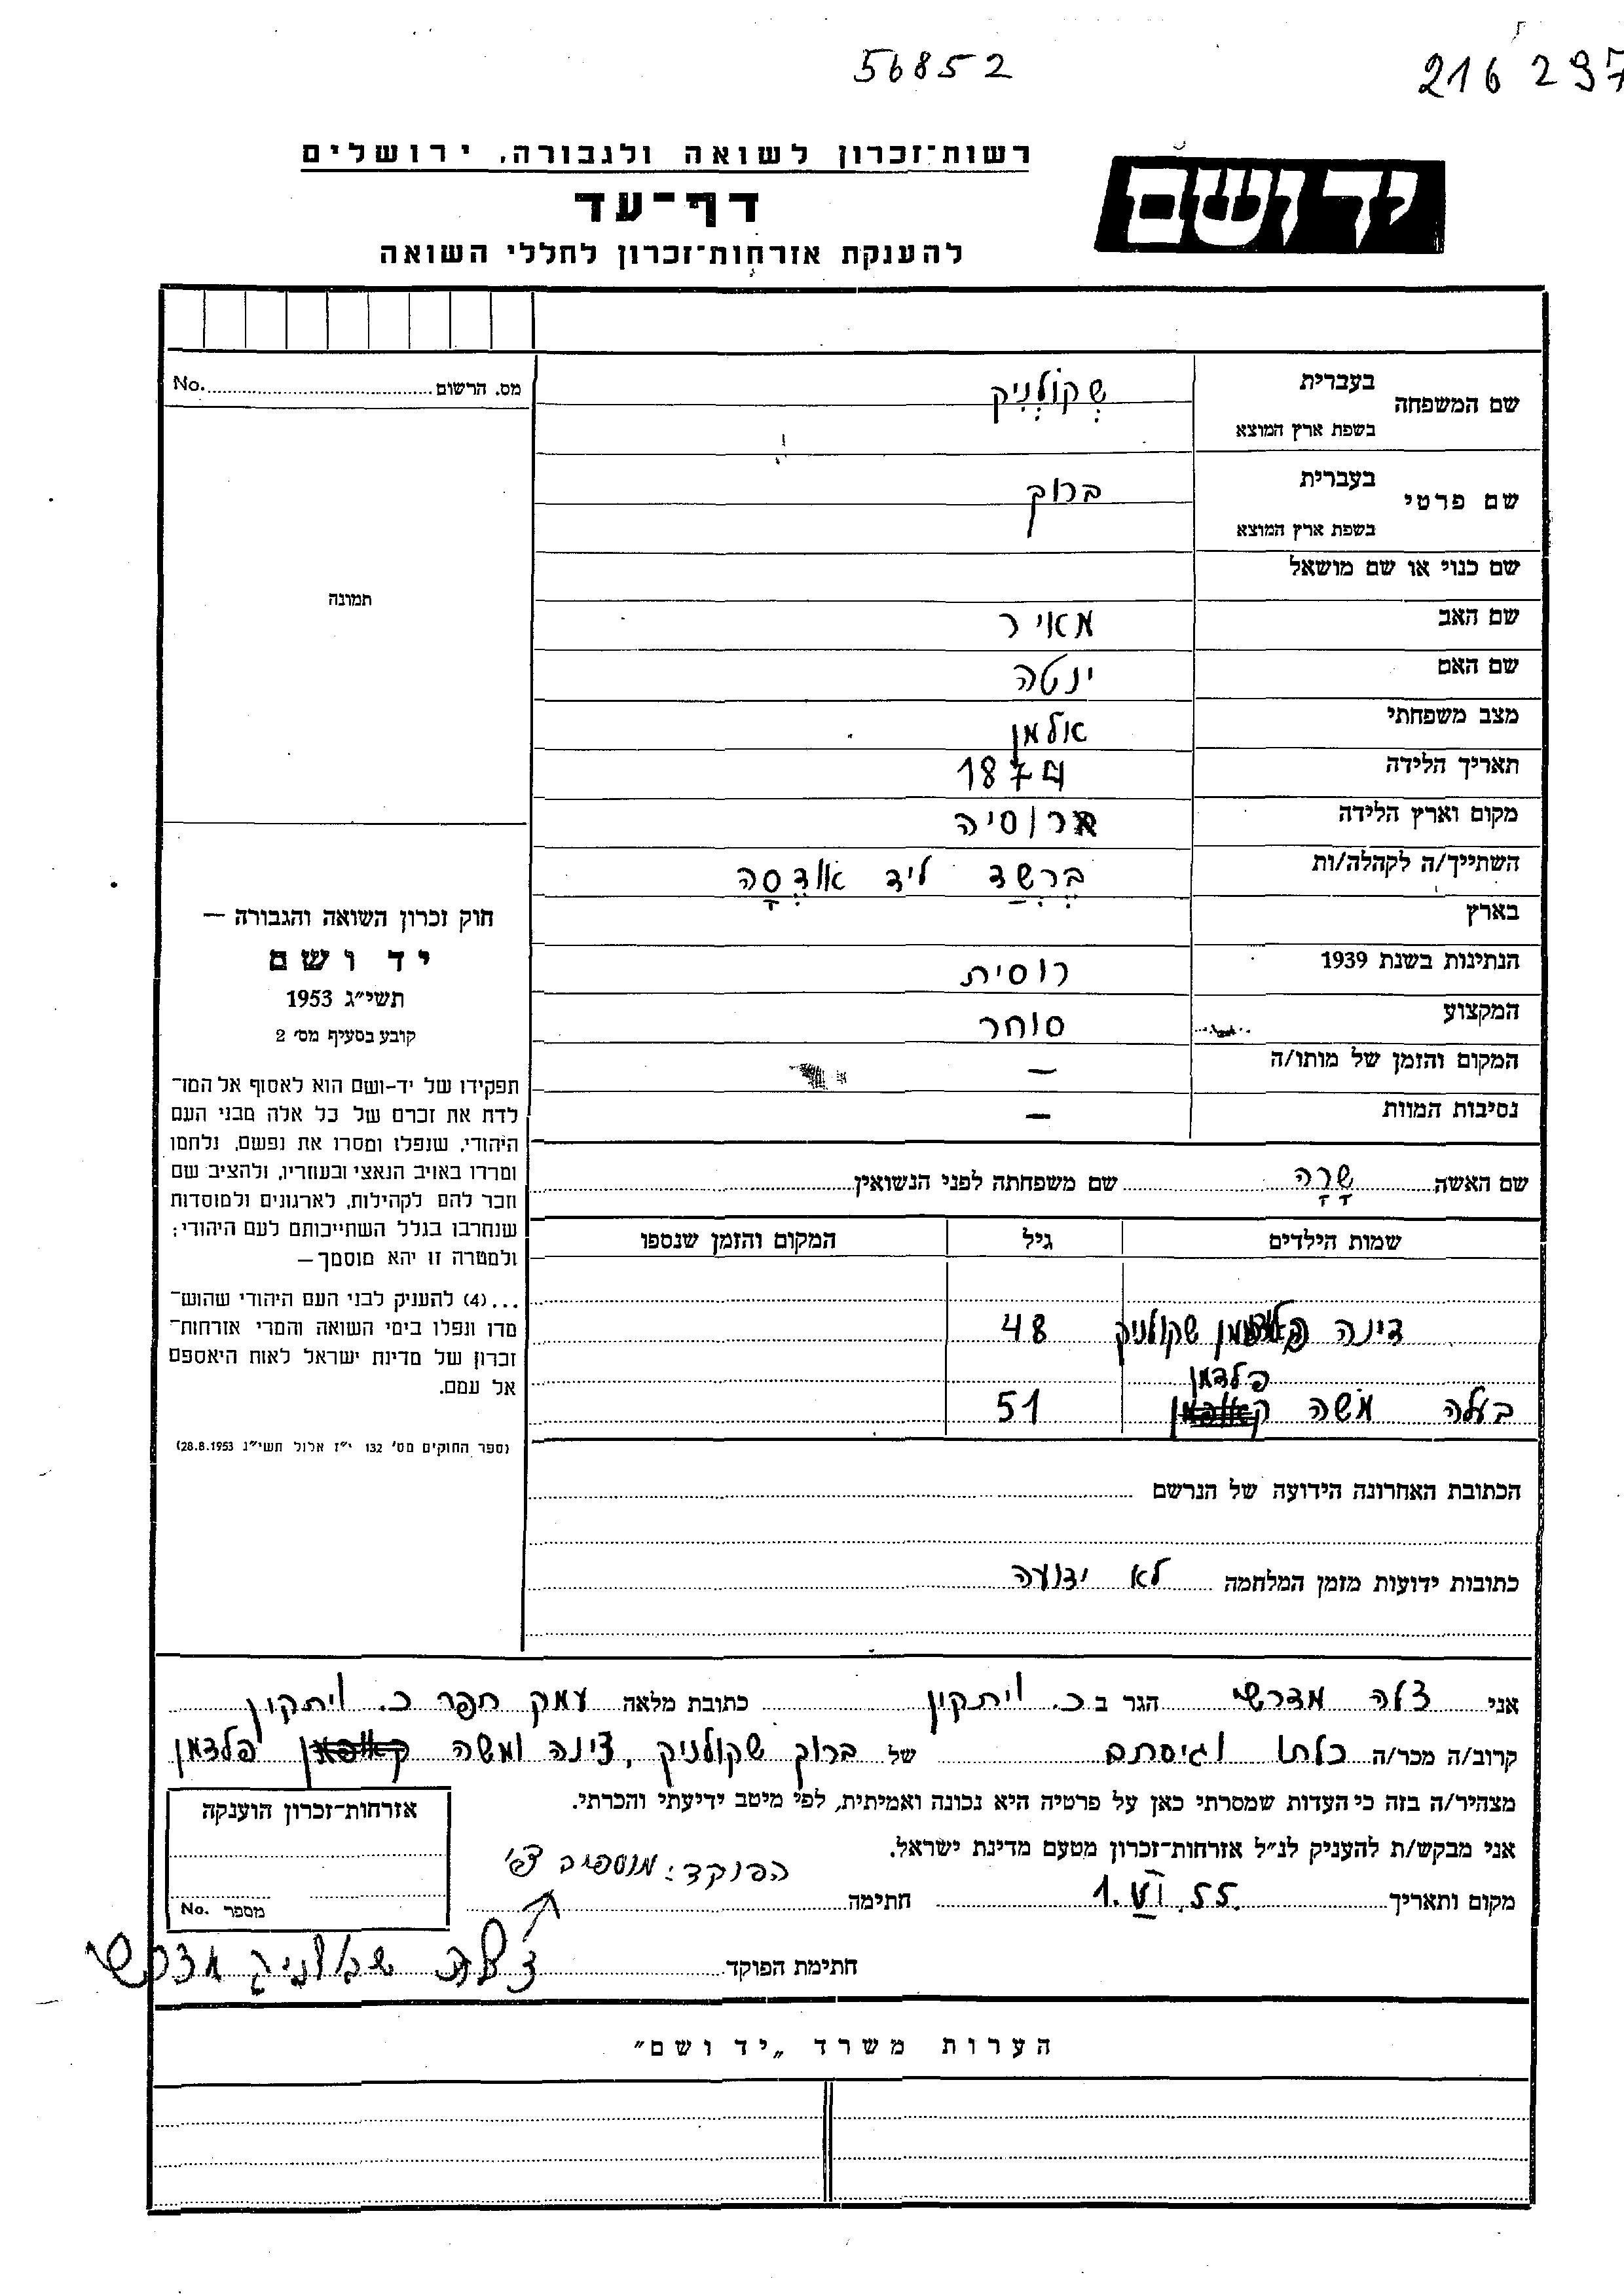 56852
216297
יד ושם
רשות־זכרון לשואה ולגבורה, ירושלים
דף־עד
להענקת אזרחות־זכרון לחללי השואה
מס. הרשום No.
שם המשפחה בעברית שְקוֹלְנִיק
בשפת ארץ המוצא
שם פרטי בעברית ברוך
בשפת ארץ המוצא
שם כנוי או שם מושאל
תמונה
שם האב מאיר
שם האם ינטה
מצב משפחתי אלמן
תאריך הלידה 1874
מקום וארץ הלידה רוסיה
השתייך/ה לקהלה/ות בֶּרְשַד ליד אוֹדֶסָה
בארץ
הנתינות בשנת 1939 רוסית
המקצוע סוחר
המקום והזמן של מותו/ה —
נסיבות המוות —
חוק זכרון השואה והגבורה —
יד ושם
תשי״ג 1953
קובע בסעיף מס׳ 2
תפקידו של יד-ושם הוא לאסוף אל המו־
לדת את זכרם של כל אלה מבני העם
היהודי, שנפלו ומסרו את נפשם, נלחמו
ומרדו באויב הנאצי ובעוזריו, ולהציב שם
וזכר להם לקהילות, לארגונים ולמוסדות
שנחרבו בגלל השתייכותם לעם היהודי;
ולמטרה זו יהא מוסמך —
...(4) להעניק לבני העם היהודי שהוש־
מדו ונפלו בימי השואה והמרי אזרחות־
זכרון של מדינת ישראל לאות היאספם
אל עמם.
(ספר החוקים מס׳ 132 י״ז אלול תשי״ג 28.8.1953)
שם האשה שָרָה שם משפחתה לפני הנשואין
שמות הילדים גיל המקום והזמן שנספו
דינה פלדמן שקולניק 48
פלדמן
בעלה משה 51
הכתובת האחרונה הידועה של הנרשם
כתובות ידועות מזמן המלחמה לא ידועה
אני צלה מדרשי הגר ב כ. ויתקין כתובת מלאה עמק חפר כ. ויתקין
קרוב/ה מכר/ה כלתו וגיסתם של ברוך שקולניק, דינה ומשה פלדמן
מצהיר/ה בזה כי העדות שמסרתי כאן על פרטיה היא נכונה ואמיתית, לפי מיטב ידיעתי והכרתי.
אני מבקש/ת להעניק לנ״ל אזרחות־זכרון מטעם מדינת ישראל.
הפוקד:
מקום ותאריך 1.VI.55. חתימה
חתימת הפוקד צלה שקולניק מדרשי
אזרחות־זכרון הוענקה
מספר No.
הערות משרד „יד ושם״